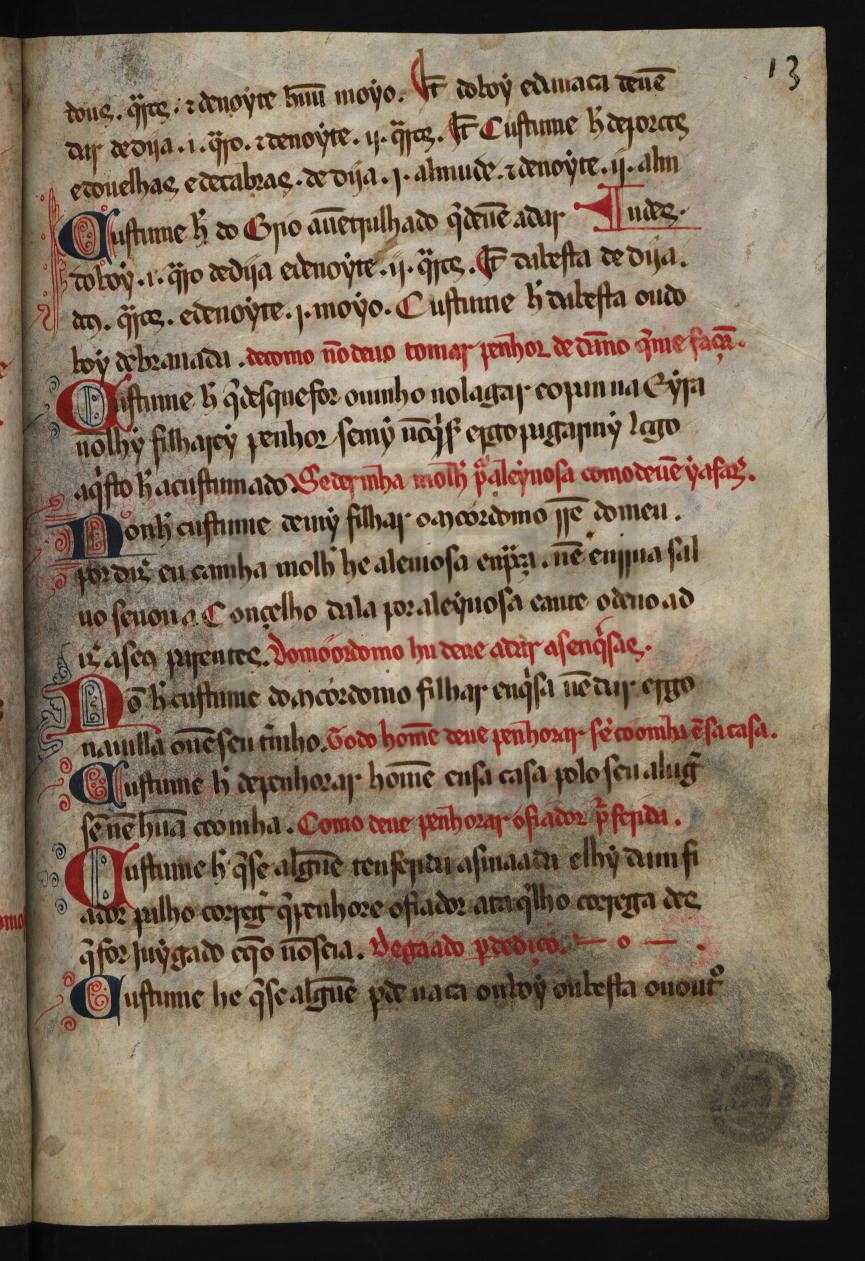 13
dous . q̃rtꝭ . ⁊ denoyte hũu moyo . It̃ do boy eda uaca deuẽ
dar de dya . i . q̃rto . ⁊ denoyte . ij . q̃rtꝭ . It̃ Custume h̃ de porcos
e douelhas e de cabras . de dija . j . almude . ⁊ denoyte . ij . alm
Custume h̃ do Grio auẽ trilhado q̃ deuẽ adar Iudeꝭ .
do boy . i . q̃rto de dija e denoyte . ij . q̃rtꝭ . It̃ da besta de dija .
. q̃rtꝭ . e denoyte . j . moyo . Custume h̃ da besta ou do
boy de branada . de como nõ deuo tomar penhor de dãno q̃ me façã .
Custume h̃ q̃ des que for ouinho no lagar eo pan na Eyra
nõ lhy filharey penhor se my ergo pugarmy logo
aq̃sto h̃ acustumado . Se der mha molh̃ aleyuosa como deuẽ y a faz̃ .
Non h̃ custume de my filhar o mcordomo rrẽ do meu .
por diz̃ eu ca mha molh̃ he aleiuosa . nẽ en ssa sal
uo se uou a Conçelho dala por aleyuosa eante o deuo ad
iz̃ a seꝯ parentes . Do moordomo hu deue adar as enq̃sas .
Nõ h̃ custume do mcordomo filhar enq̃sa nẽ dar ergo
na uilla ou ẽ seu t̃minho . Todo homẽ deue penhorar sẽ coomha ẽ sa casa .
Custume h̃ de penhorar homẽ en sa casa polo seu alug̃
sẽ nẽ hũa coomha . Como deue penhorar o fiador p̃ ferida .
Custume h̃ q̃ se algũe ten ferida asinaada e lhy dam fi
ador pa lho correg̃ q̃ penhore o fiador ata q̃ lho correga des
q̃ for Juygado nõ seia . De gaado
Custume he q̃ se algũe pde uaca ou boy ou besta ou out̃o